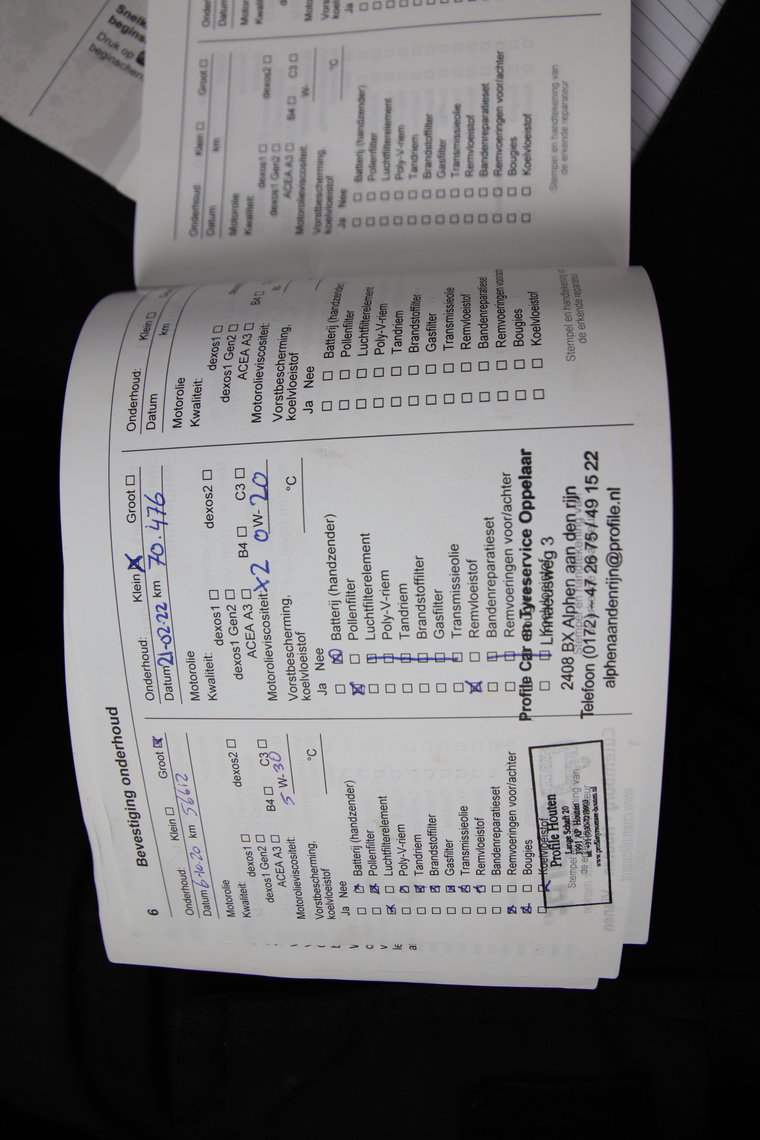 6
Bevestiging onderhoud
Onderhoud: Klein Groot
Datum 6-10-20 km 56612
Motorolie
Kwaliteit: dexos1 dexos2
dexos1 Gen2
ACEA A3 B4 C3
Motorolieviscositeit: 5 W- 30
Vorstbescherming,
koelvloeistof °C
Ja Nee
Batterij (handzender)
Pollenfilter
Luchtfilterelement
Poly-V-riem
Tandriem
Brandstoffilter
Gasfilter
Transmissieolie
Remvloeistof
Bandenreparatieset
Remvoeringen voor/achter
Bougies
Koelvloeistof
Profile Houten
Lange Schaft 20
3991 AP Houten
Onderhoud: Klein Groot
Datum 21-02-22 km 70.476
Motorolie
Kwaliteit: dexos1 dexos2
dexos1 Gen2
ACEA A3 B4 C3
Motorolieviscositeit: x2 0 W- 20
Vorstbescherming,
koelvloeistof °C
Ja Nee
Batterij (handzender)
Pollenfilter
Luchtfilterelement
Poly-V-riem
Tandriem
Brandstoffilter
Gasfilter
Transmissieolie
Remvloeistof
Bandenreparatieset
Remvoeringen voor/achter
Profile Car en Tyreservice Oppelaar
Linnaeusweg 3
2408 BX Alphen aan den rijn
Telefoon (0172) - 47 26 75 / 49 15 22
alphenaandenrijn@profile.nl
Onderhoud: Klein
Datum km
Motorolie
Kwaliteit: dexos1
dexos1 Gen2
ACEA A3 B4
Motorolieviscositeit:
Vorstbescherming,
koelvloeistof
Ja Nee
Batterij (handzender)
Pollenfilter
Luchtfilterelement
Poly-V-riem
Tandriem
Brandstoffilter
Gasfilter
Transmissieolie
Remvloeistof
Bandenreparatieset
Remvoeringen
Bougies
Koelvloeistof
Stempel en handtekening
de erkende reparateur
Onderhoud: Klein Groot
Datum km
Motorolie
Kwaliteit: dexos1 dexos2
dexos1 Gen2
ACEA A3 B4 C3
Motorolieviscositeit: W-
Vorstbescherming,
koelvloeistof °C
Ja Nee
Batterij (handzender)
Pollenfilter
Luchtfilterelement
Poly-V-riem
Tandriem
Brandstoffilter
Gasfilter
Transmissieolie
Remvloeistof
Bandenreparatieset
Remvoeringen voor/achter
Bougies
Koelvloeistof
Stempel en handtekening van
de erkende reparateur
Ja
Druk op